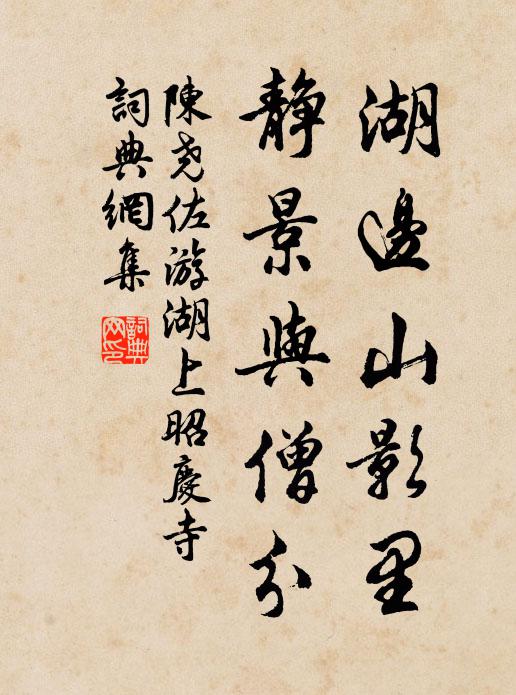 湖邊山影里
靜景與僧分
陳堯佐游湖上昭慶寺
詞典網集
詞典網印